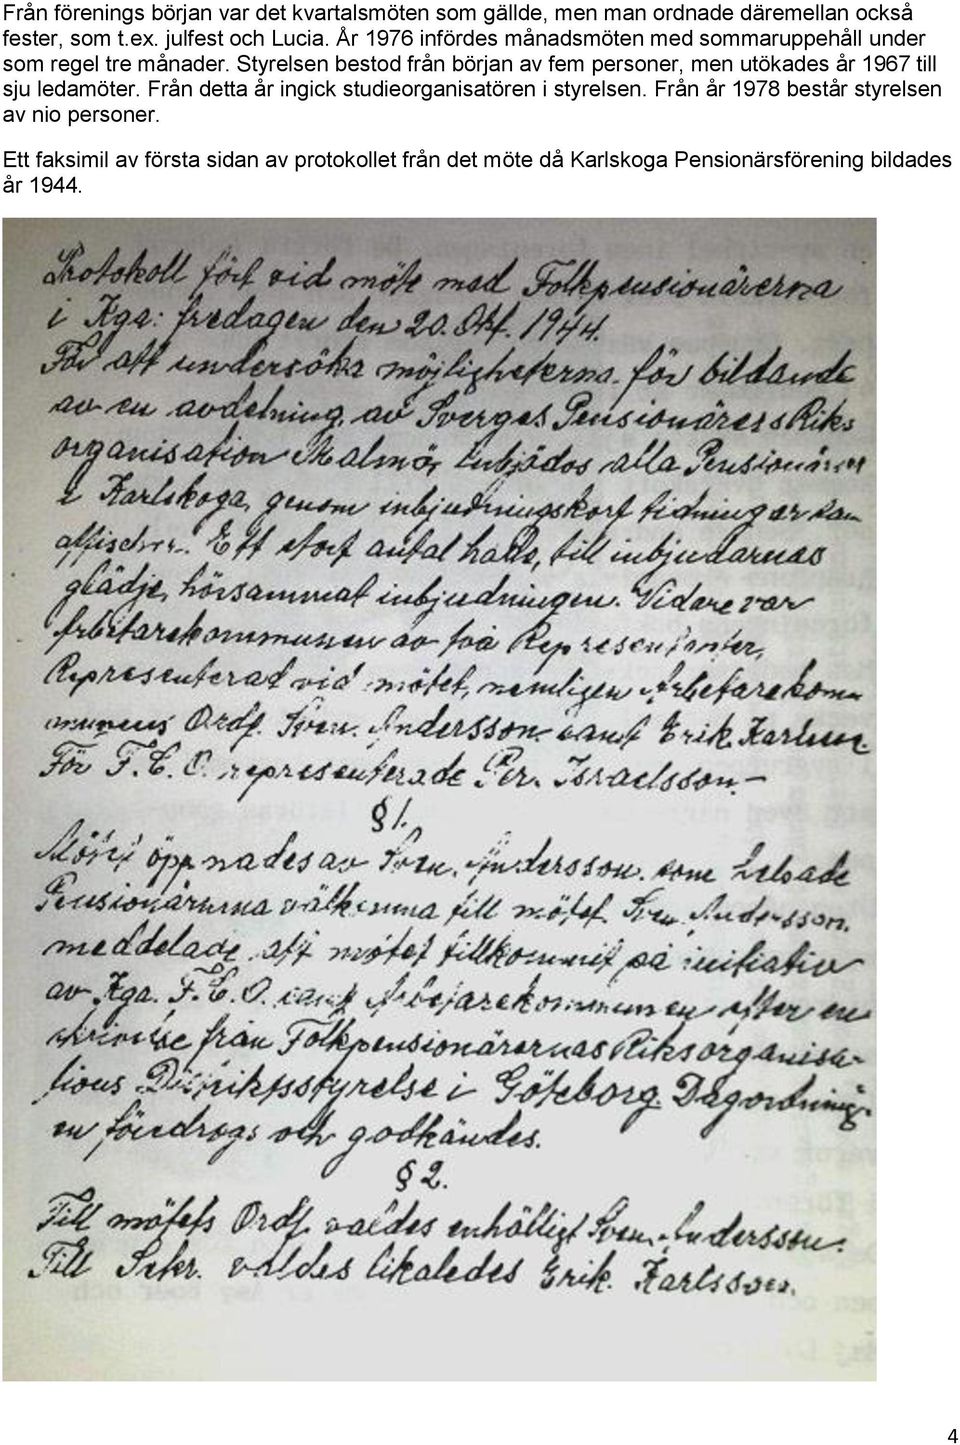 Från förenings början var det kvartalsmöten som gällde, men man ordnade däremellan också
fester, som t.ex. julfest och Lucia. År 1976 infördes månadsmöten med sommaruppehåll under
som regel tre månader. Styrelsen bestod från början av fem personer, men utökades år 1967 till
sju ledamöter. Från detta år ingick studieorganisatören i styrelsen. Från år 1978 består styrelsen
av nio personer.
Ett faksimil av första sidan av protokollet från det möte då Karlskoga Pensionärsförening bildades
år 1944.
Protokoll fört vid möte med Folkpensionärerna
i Kga: fredagen den 20. Okt. 1944.
För att undersöka möjligheterna för bildande
av en avdelning av Sverges Pensionärers Riks
organisation Malmö, inbjödos alla Pensionärer
i Karlskoga, genom inbjudningskort tidningar
affischer. Ett stort antal hade, till inbjudarnas
glädje, hörsammat inbjudningen. Vidare var
Arbetarekommunen av två Representanter,
Representerad vid mötet, nemligen Arbetarekom=
munens Ordf. Sven. Andersson samt Erik.
För F.C.O. representerade Per. Israelsson.-
§ 1.
Mötet öppnades av Sven. Andersson. som helsade
Pensionärerna välkomna till mötet. Sven. Andersson.
meddelade att mötet tillkommit på initiativ
av Kga. F.C.O. samt Arbetarekommunen efter en
skrivelse från Folkpensionärernas Riksorganisa-
tions Distriktsstyrelse i Göteborg. Dagordning-
en föredrogs och godkändes.
§ 2.
Till mötets Ordf. valdes enhälligt Sven. Andersson.
Till Sekr. valdes likaledes Erik. Karlsson.
4